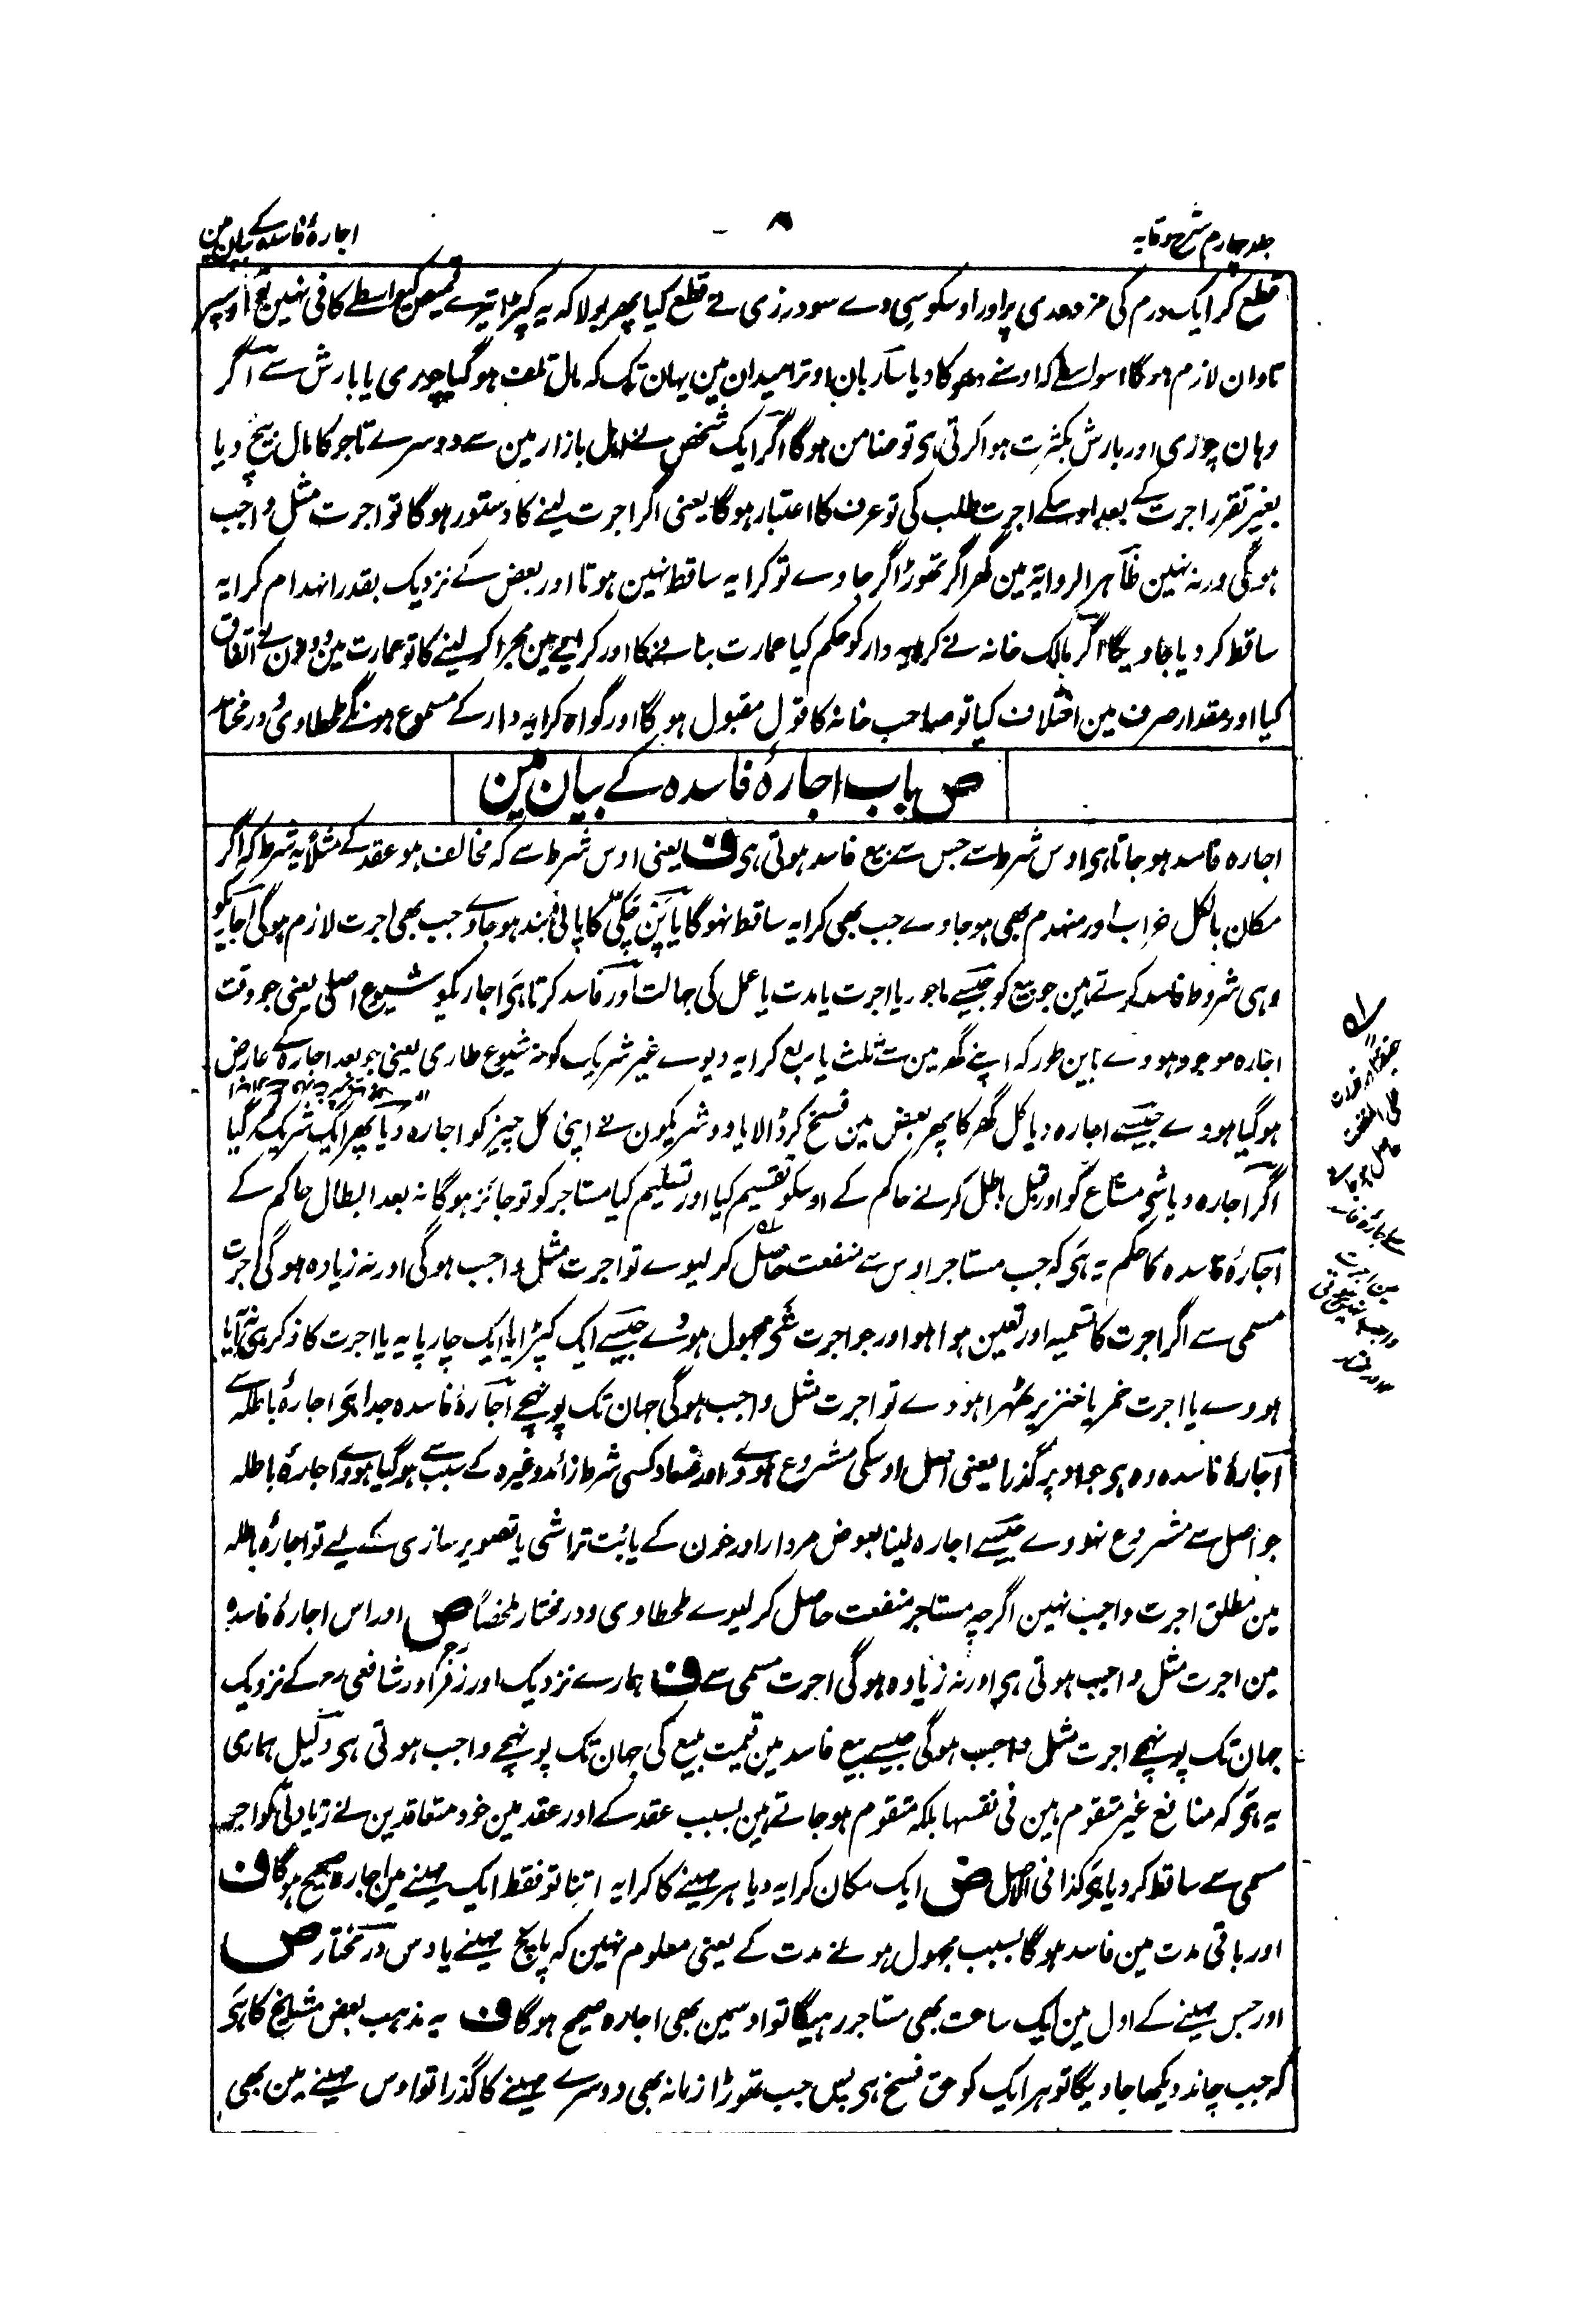 جلد چہارم شرح وقایہ
۸
اجارۂ فاسدہ کے بیان مین
قطع کر ایک درم کی مزدوری پر اور اوسکو سی دے سو درزی نے قطع کیا پھر بولا کہ یہ کپڑا تیرے قمیص کیواسطے کافی نہین تو اوسپر
تاوان لازم ہوگا اسواسطے کہ اوسنے دھوکا دیا ساربان اوترا میدان مین یہان تک کہ مال تلف ہوگیا چوری یا بارش سے اگر
وہان چوری اور بارش بکثرت ہوا کرتی ہی تو ضامن ہوگا اگر ایک شخص نے اہل بازار مین سے دوسرے تاجر کا مال بیچ دیا
بغیر تقرر اجرت کے بعد اوسکے اجرت طلب کی تو عرف کا اعتبار ہوگا یعنی اگر اجرت لینے کا دستور ہوگا تو اجرت مثل واجب
ہوگی ورنہ نہین ظاہر الروایۃ مین گھر اگر تھوڑا گر جاوے تو کرایہ ساقط نہین ہوتا اور بعض کے نزدیک بقدر انہدام کرایہ
ساقط کر دیا جاویگا اگر مالک خانہ نے کرایہ دار کو حکم کیا عمارت بنانے کا اور کرایے مین مجرا کر لینے کا تو عمارت مین دونون نے اتفاق
کیا اور مقدار صرف مین اختلاف کیا تو صاحب خانہ کا قول مقبول ہوگا اور گواہ کرایہ دار کے مسموع ہونگے طحطاوی و درمختار
ص باب اجارۂ فاسدہ کے بیان مین
اجارہ فاسد ہو جاتا ہی اوس شرط سے جس سے بیع فاسد ہوتی ہی ف یعنی اوس شرط سے کہ مخالف ہو عقد کے مثلاً یہ شرط کہ اگر
مکان بالکل خراب اور منہدم بھی ہو جاوے جب بھی کرایہ ساقط نہوگا یا پن چکی کا پانی بند ہو جاوے جب بھی اجرت لازم ہوگی اجارے کو
وہی شروط فاسد کرتے ہین جو بیع کو جیسے ماجور یا اجرت یا مدت یا عمل کی جہالت اور فاسد کرتا ہی اجاریکو شیوع اصلی یعنی جو وقت
اجارہ موجود ہووے باین طور کہ اپنے گھر مین سے ثلث یا ربع کرایہ دیوے غیر شریک کو نہ شیوع طاری یعنی جو بعد اجارہ کے عارض
ہوگیا ہووے جیسے اجارہ دیا کل گھر کا پھر بعض مین فسخ کر ڈالا یا دو شریکون نے اپنی کل چیز کو اجارہ دیا پھر ایک شریک مر گیا
اگر اجارہ دیا شی مشاع کو اور قبل باطل کرنے حاکم کے اوسکو تقسیم کیا اور تسلیم کیا مستاجر کو تو جائز ہوگا نہ بعد ابطال حاکم کے
اجارۂ فاسدہ کا حکم یہ ہی کہ جب مستاجر اوس سے منفعت حاصل کر لیوے تو اجرت مثل واجب ہوگی اور نہ زیادہ ہوگی اجرت
مسمی سے اگر اجرت کا تسمیہ اور تعین ہوا ہو اور جو اجرت شی مجہول ہووے جیسے ایک کپڑا یا ایک چارپایہ یا اجرت کا ذکر ہی نہ آیا
ہووے یا اجرت خمر یا خنزیر ٹھہرا ہووے تو اجرت مثل واجب ہوگی جہان تک پونہچے اجارۂ فاسدہ جدا ہی اجارۂ باطلہ سے
اجارۂ فاسدہ وہ ہی جو اوپر گذرا یعنی اصل اوسکی مشروع ہووے اور فساد کسی شرط زائد وغیرہ کے سبب سے ہوگیا ہووے اجارۂ باطلہ
جو اصل سے مشروع نہووے جیسے اجارہ لینا بعوض مردار اور خون کے یا بت تراشی یا تصویر سازی کے لیے تو اجارۂ باطلہ
مین مطلق اجرت واجب نہین اگرچہ مستاجر منفعت حاصل کر لیوے طحطاوی و درمختار ملخصاً ص اور اس اجارۂ فاسدہ
مین اجرت مثل واجب ہوتی ہی اور نہ زیادہ ہوگی اجرت مسمی سے ف ہمارے نزدیک اور زفر رح اور شافعی رح کے نزدیک
جہان تک پونہچے اجرت مثل واجب ہوگی جیسے بیع فاسد مین قیمت مبیع کی جہان تک پونہچے واجب ہوتی ہی دلیل ہماری
یہ ہی کہ منافع غیر متقوم ہین فی نفسہا بلکہ متقوم ہو جاتے ہین بسبب عقد کے اور عقد مین خود متعاقدین نے زیادتی کو اجر
مسمی سے ساقط کر دیا ہی کذا فی الاصل ص ایک مکان کرایہ دیا ہر مہینے کا کرایہ اتنا تو فقط ایک مہینے مین اجارہ صحیح ہوگا ف
اور باقی مدت مین فاسد ہوگا بسبب مجہول ہونے مدت کے یعنی معلوم نہین کہ پانچ مہینے یا دس درمختار ص
اور جس مہینے کے اول مین ایک ساعت بھی مستاجر رہیگا تو اوسمین بھی اجارہ صحیح ہوگا ف یہ مذہب بعض مشایخ کا ہی
کہ جب چاند دیکھا جاویگا تو ہر ایک کو حق فسخ ہی پس جب تھوڑا زمانہ بھی دوسرے مہینے کا گذرا تو اوس مہینے مین بھی